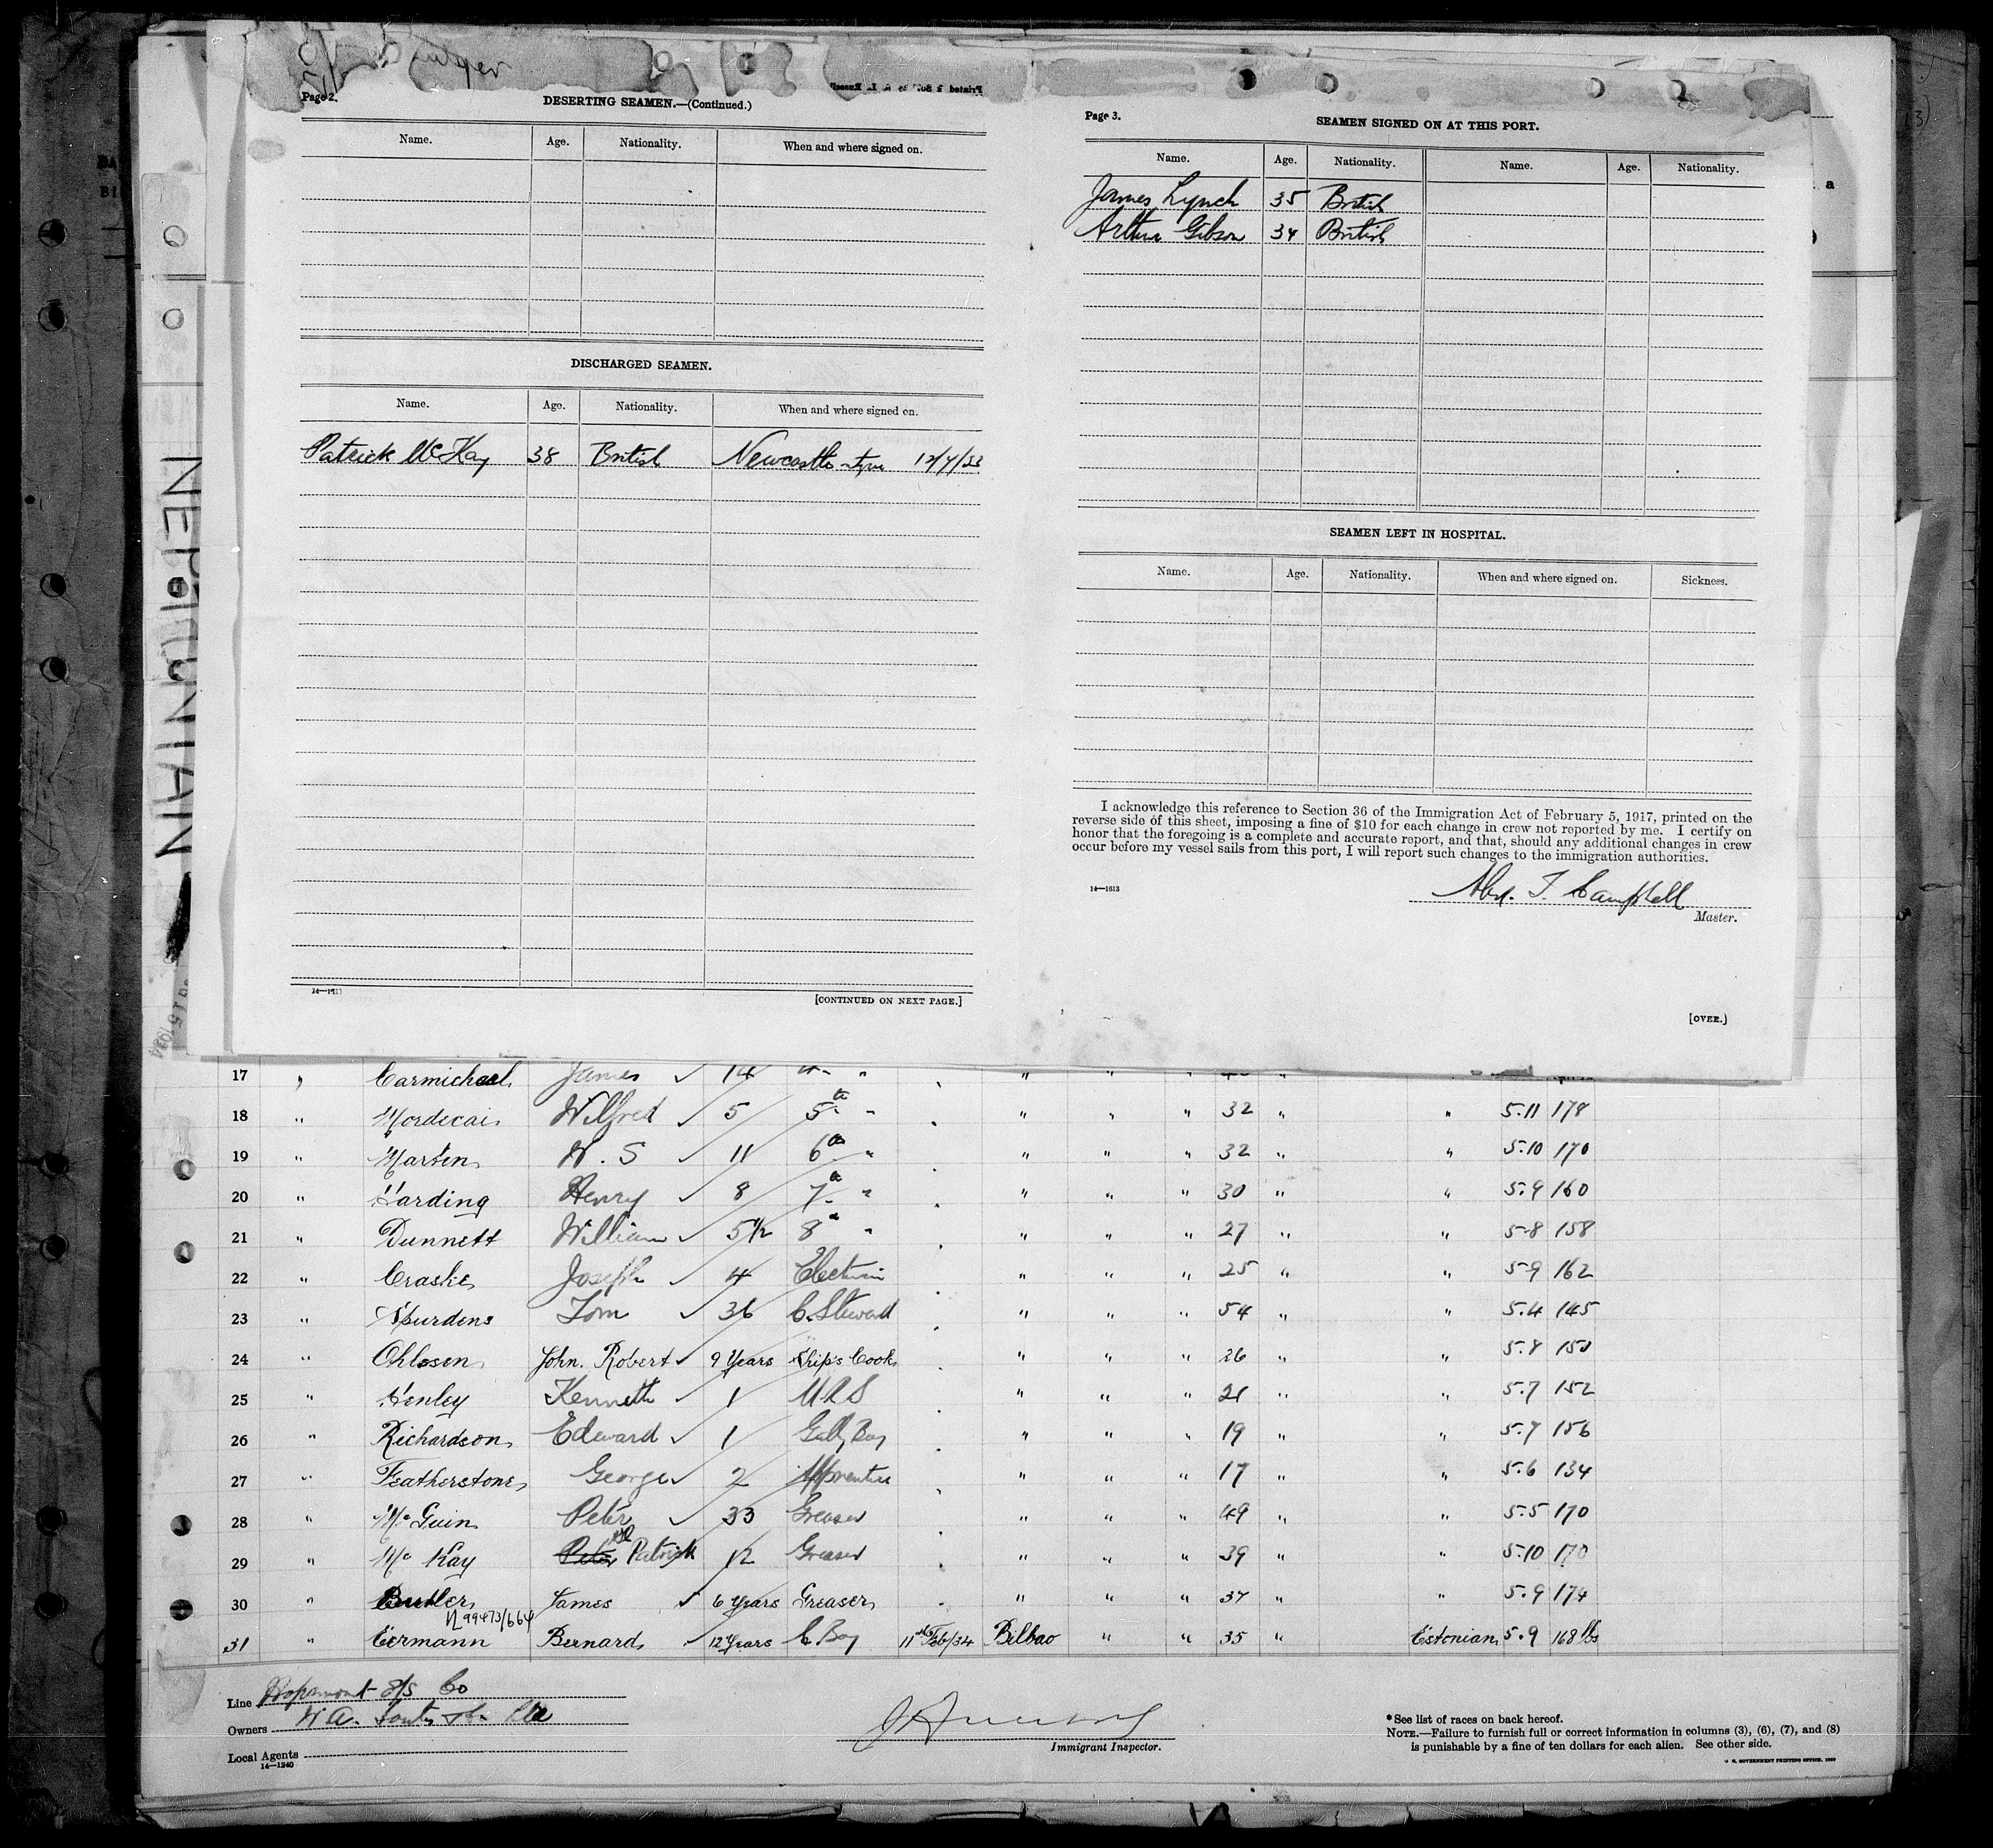 Page 2.
DESERTING SEAMEN.—(Continued.)
Name. Age. Nationality. When and where signed on.
DISCHARGED SEAMEN.
Name. Age. Nationality. When and where signed on.
Patrick McKay 38 British Newcastle-Tyne 12/7/33
14—1613
[CONTINUED ON NEXT PAGE.]
Page 3.
SEAMEN SIGNED ON AT THIS PORT.
Name. Age. Nationality. Name. Age. Nationality.
James Lynch 35 British
Arthur Gibson 34 British
SEAMEN LEFT IN HOSPITAL.
Name. Age. Nationality. When and where signed on. Sickness.
I acknowledge this reference to Section 36 of the Immigration Act of February 5, 1917, printed on the
reverse side of this sheet, imposing a fine of $10 for each change in crew not reported by me. I certify on
honor that the foregoing is a complete and accurate report, and that, should any additional changes in crew
occur before my vessel sails from this port, I will report such changes to the immigration authorities.
14—1613
T. Campbell
Master.
[OVER.]
NEPTUNIAN
17 " Carmichael James ✓ 14 4 "
18 " Mordecai Wilfred ✓ 5 5th " " " " 32 " " 5.11 178
19 " Marten W. S ✓ 11 6th " " " " 32 " " 5.10 170
20 " Harding Henry ✓ 8 7th " " " " 30 " " 5.9 160
21 " Dunnett William ✓ 5½ 8th " " " " 27 " " 5-8 158
22 " Craske Joseph ✓ 4 Electrician " " " 25 " " 5-9 162
23 " Spurdens Tom ✓ 36 C. Steward " " " 54 " " 5.4 145
24 " Ohlosen John. Robert ✓ 9 Years Ship's Cook " " " 26 " " 5.8 150
25 " Henley Kenneth ✓ 1 M R S " " " 21 " " 5.7 152
26 " Richardson Edward ✓ 1 Gally Boy " " " 19 " " 5.7 156
27 " Featherstone George ✓ 2 Apprentice " " " 17 " " 5.6 134
28 " McGuin Peter ✓ 33 Greaser " " " 49 " " 5.5 170
29 " McKay Peter Patrick 12 Greaser " " " 39 " " 5.10 170
30 " Butler James ✓ 6 Years Greaser " " " 37 " " 5.9 174
99473/664
31 " Eermann Bernard ✓ 12 Years C. Boy 11th Feb/34 Bilbao " " 35 " Estonian 5.9 168 lbs
Line Hopemount S/S Co
Owners W A. Souter & Co Ltd
Local Agents
14—1240
Immigrant Inspector.
*See list of races on back hereof.
NOTE.—Failure to furnish full or correct information in columns (3), (6), (7), and (8)
is punishable by a fine of ten dollars for each alien. See other side.